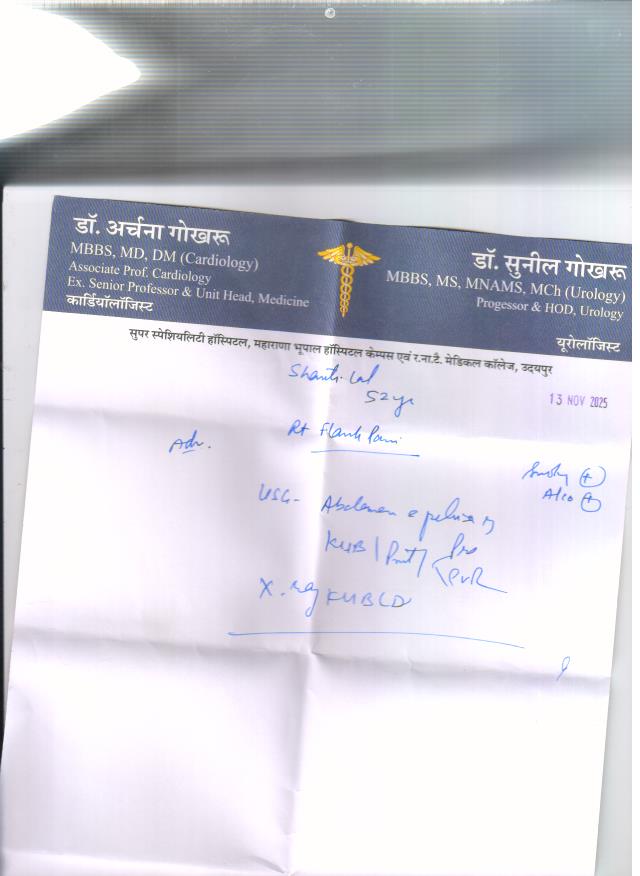 डॉ. अर्चना गोखरू
MBBS, MD, DM (Cardiology)
Associate Prof. Cardiology
Ex. Senior Professor & Unit Head, Medicine
कार्डियॉलॉजिस्ट
डॉ. सुनील गोखरू
MBBS, MS, MNAMS, MCh (Urology)
Progessor & HOD, Urology
यूरोलॉजिस्ट
सुपर स्पेशियलिटी हॉस्पिटल, महाराणा भूपाल हॉस्पिटल केम्पस एवं र.ना.टै. मेडिकल कॉलेज, उदयपुर
Shanti Lal
52 yr
13 NOV 2025
Rt Flank Pain
Adv.
Alco +
USG - Abdomen c pelvis
KUB / Prost / Pre
PVR
X.ray KUB